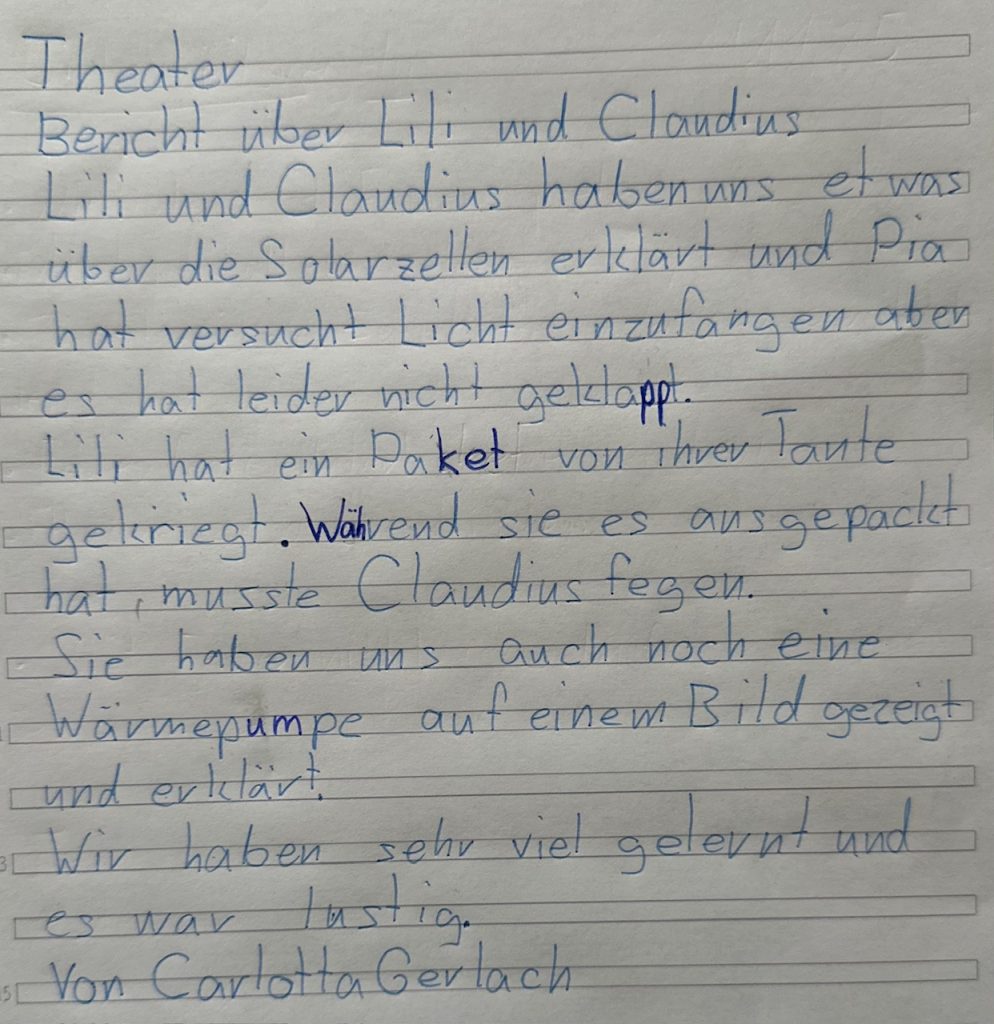 Theater
Bericht über Lili und Claudius
Lili und Claudius haben uns etwas
über die Solarzellen erklärt und Pia
hat versucht Licht einzufangen aber
es hat leider nicht geklappt.
Lili hat ein Paket von ihrer Tante
gekriegt. Während sie es ausgepackt
hat, musste Claudius fegen.
Sie haben uns auch noch eine
Wärmepumpe auf einem Bild gezeigt
und erklärt.
Wir haben sehr viel gelernt und
es war lustig.
Von Carlotta Gerlach